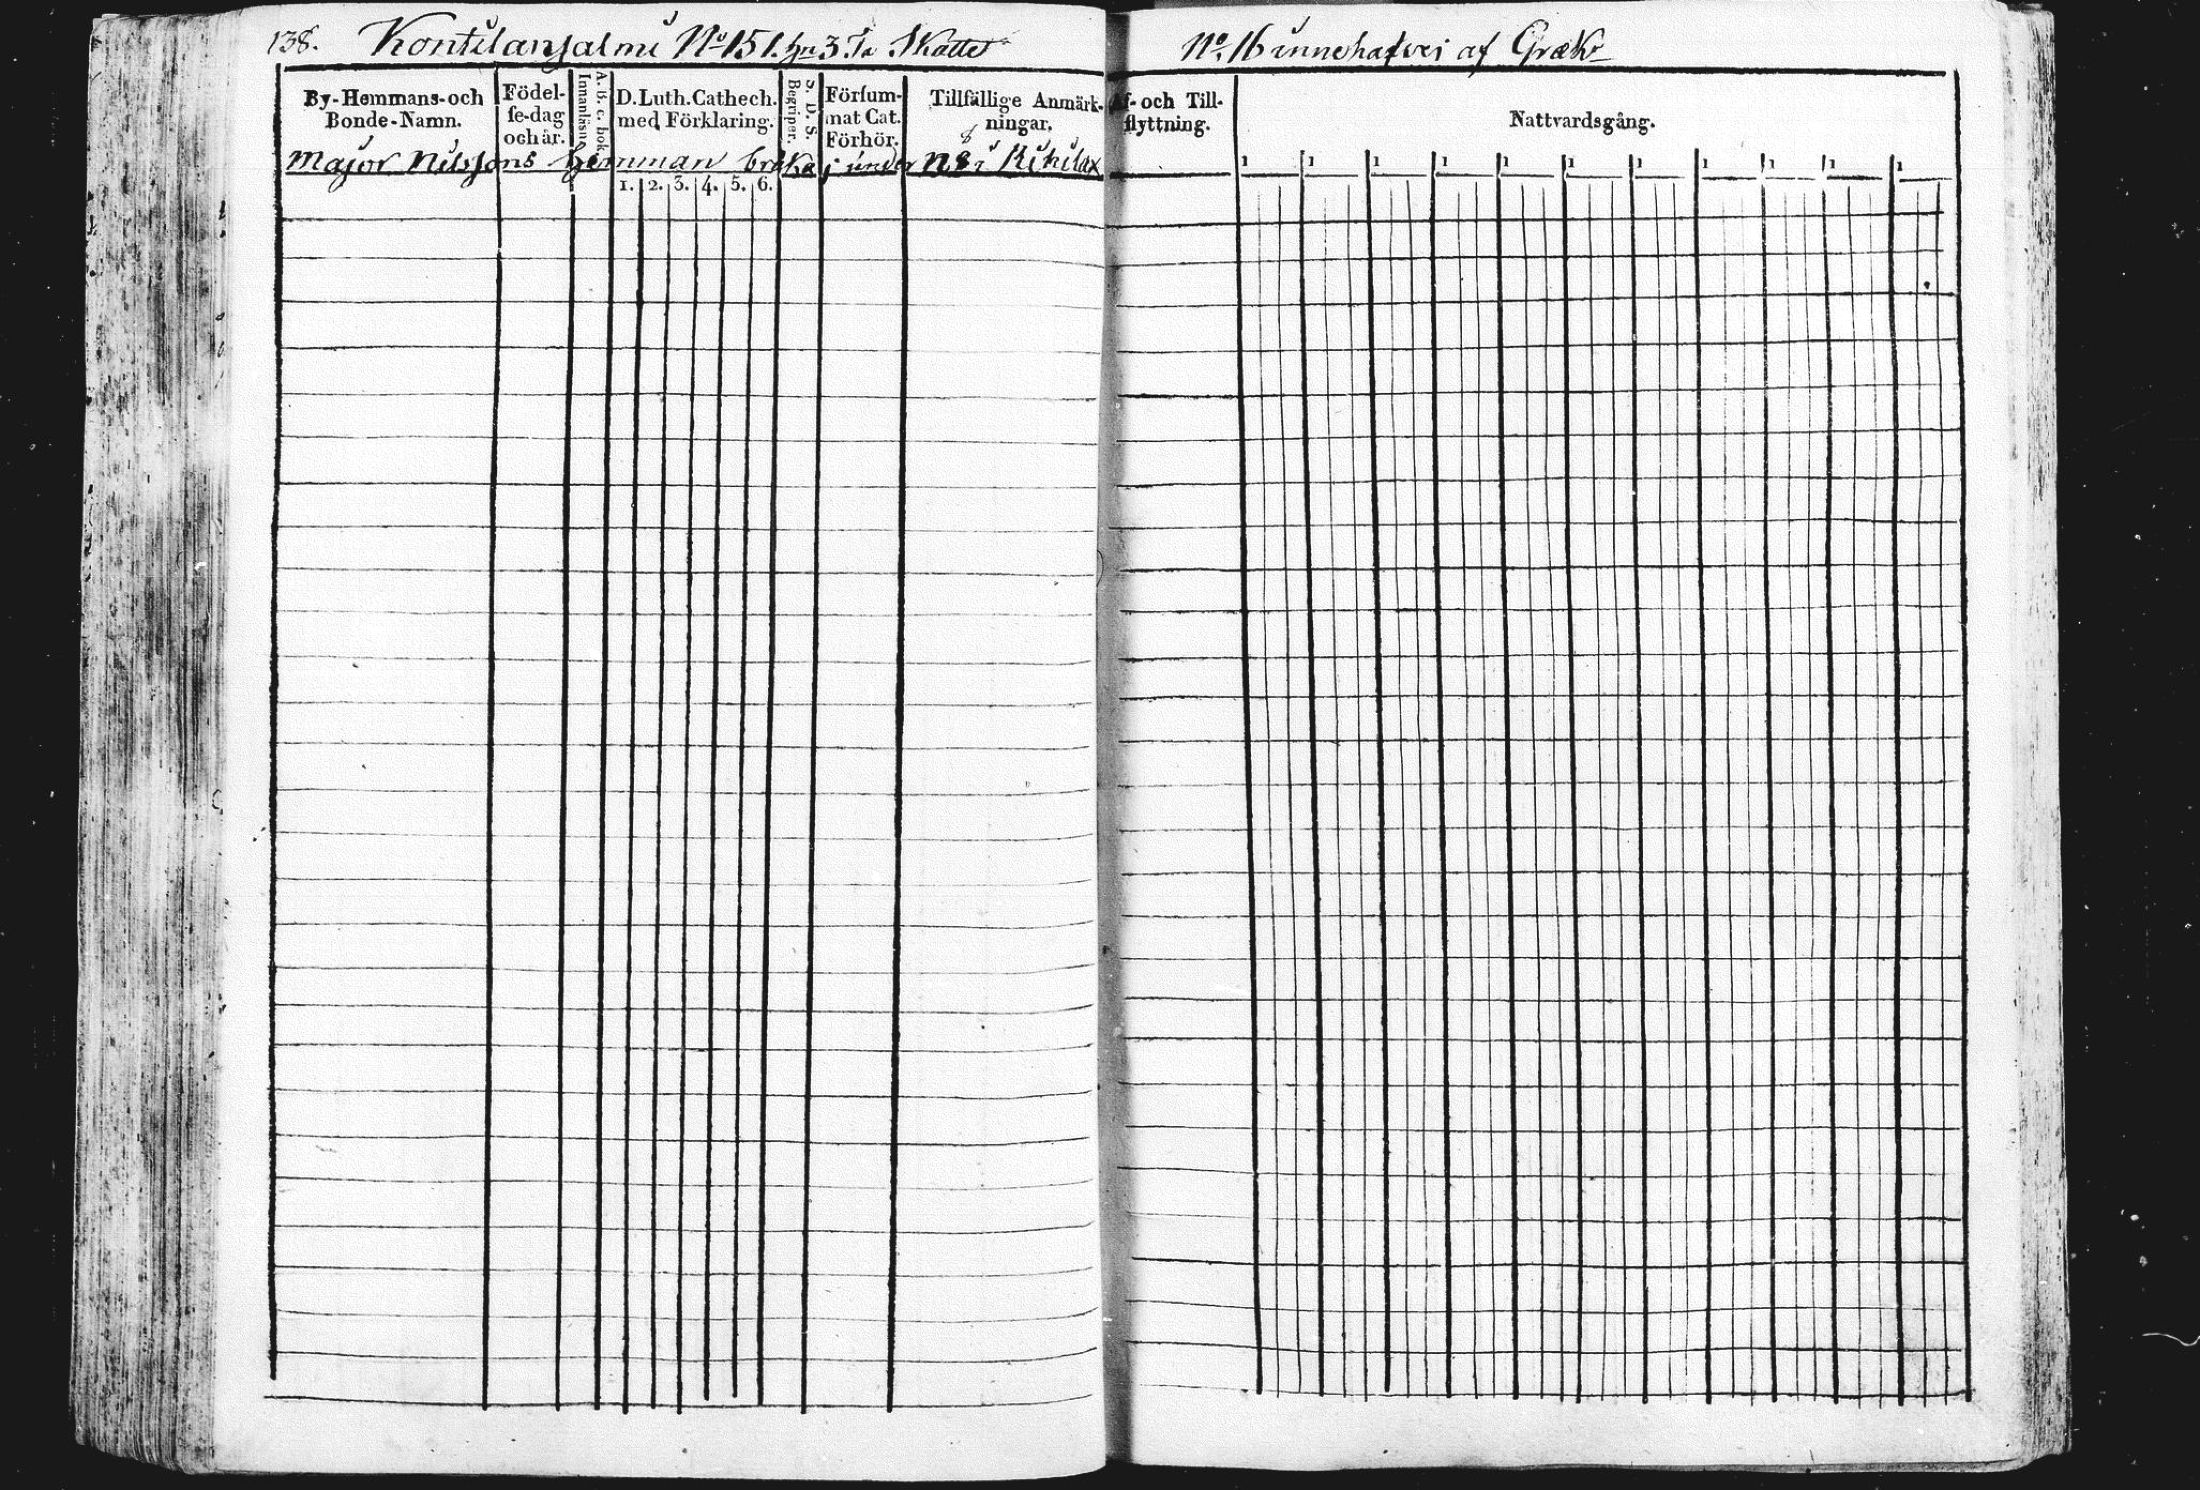 138. Kontilanjalmi No 15 1. hn 3 Ta Skattet No. 16 innehafves af Græk
By-Hemmans-och Bonde-Namn.
Födel-
se-dag
och år.
A. B. c. bok
Innanläsn.
D. Luth. Cathech.
med Förklaring.
S. D. S.
Begriper.
Försum-
mat Cat.
Förhör.
Tillfällige Anmärk-
ningar.
Af- och Till-
flyttning.
Nattvardsgång.
Major Nilssons Hemman brukas under N 8 i Kukilax
8
1. 2. 3. 4. 5. 6.
1 1 1 1 1 1 1 1 1 1 1